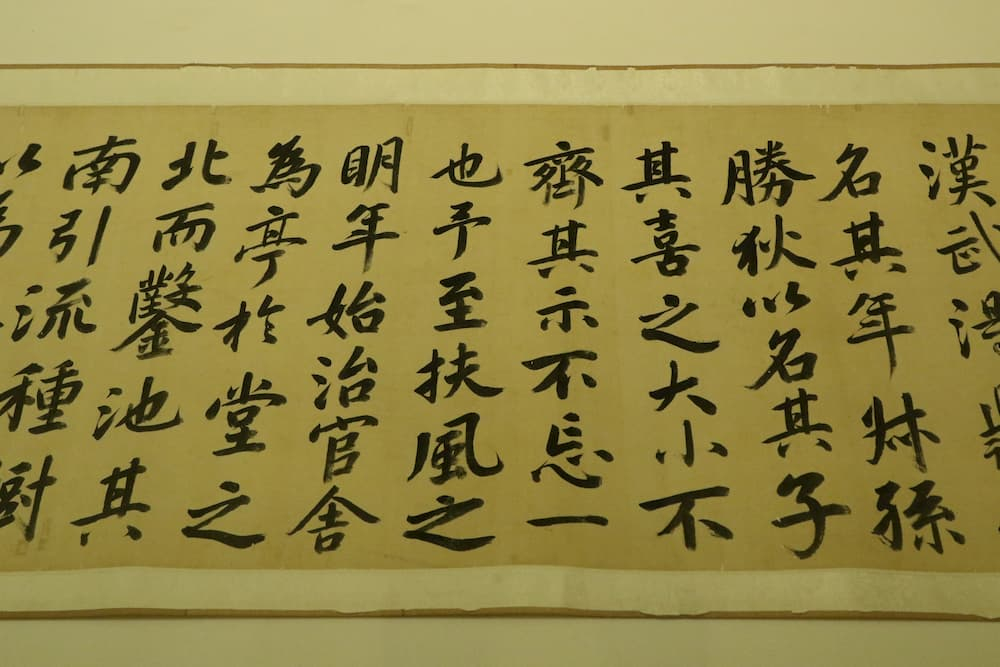 漢武得鼎
名其年叔孫
勝狄以名其子
其喜之大小不
齊其示不忘一
也予至扶風之
明年始治官舍
為亭於堂之
北而鑿池其
南引流種樹
以為